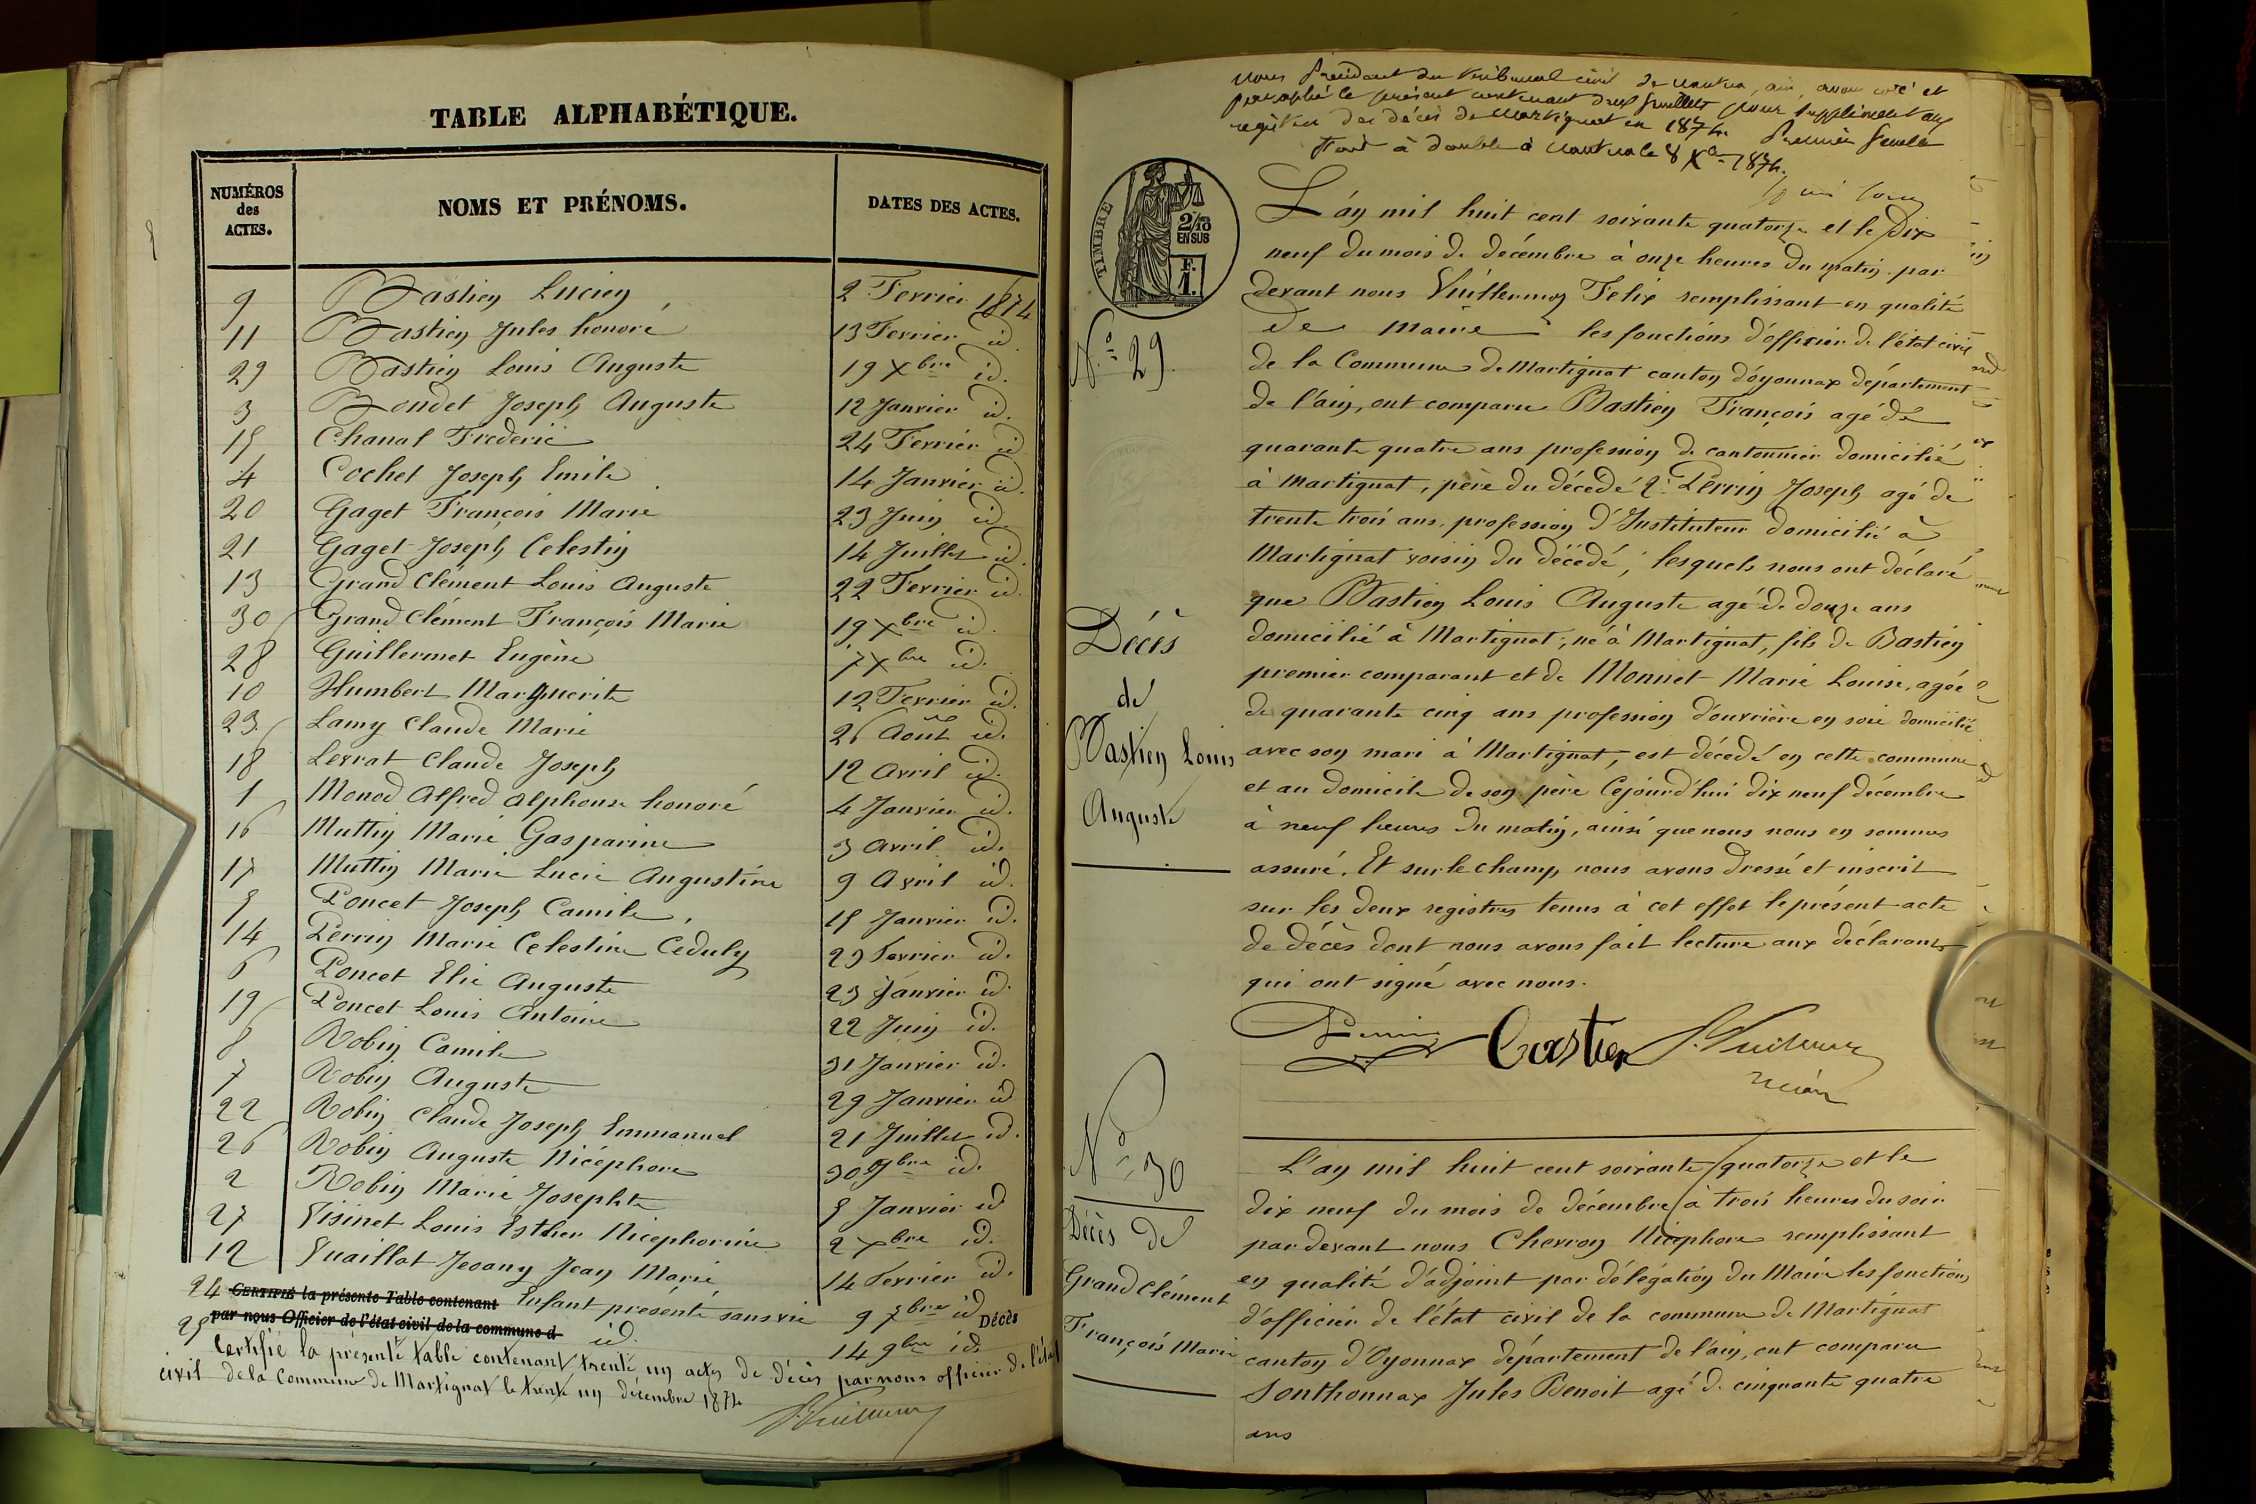 TABLE ALPHABÉTIQUE.
NUMÉROS
des
ACTES.
NOMS ET PRÉNOMS.
DATES DES ACTES.
9 Bastien Lucien, 2 Fevrier 1874
11 Bastien Jules honoré 13 Fevrier id.
29 Bastien Louis Auguste 19 Xbre id.
3 Bondet Joseph Auguste 12 Janvier id.
15 Chanal Frederic 24 Fevrier id
4 Cochet Joseph Emile 14 Janvier id.
20 Gaget François Marie 23 Juin id.
21 Gaget Joseph Celestin 14 Juillet id.
13 Grand Clément Louis Auguste 22 Fevrier id.
30 Grand Clément François Marie 19 Xbre id.
28 Guillermet Eugène 7 Xbre id.
10 Humbert Marguerite 12 Fevrier id.
23 Lamy Claude Marie 26 Août id.
18 Levrat Claude Joseph 12 Avril id.
1 Monod Alfred Alphonse honoré 4 Janvier id.
16 Muttin Marie Gasparine 3 Avril id.
17 Muttin Marie Lucie Augustine 9 Avril id.
5 Poncet Joseph Camile, 15 Janvier id.
14 Perrin Marie Celestine 23 Fevrier id.
6 Poncet Elie Auguste 23 Janvier id.
19 Poncet Louis Antoine 22 Juin id.
8 Robin Camile 31 Janvier id.
7 Robin Auguste 29 Janvier id
22 Robin Claude Joseph Emmanuel 21 Juillet id.
26 Robin Auguste Nicéphore 30 9bre id.
2 Robin Marie Josephte 5 Janvier id
27 Visinet Louis Esther Nicephorine 2 Xbre id.
12 Vuaillat Jeoany Jean Marie 14 Fevrier id.
24 CERTIFIÉ la présente Table contenant Enfant présenté sans vie 9 7bre id Décès
25 par nous Officier de l'état civil de la commune d id. 14 9bre id.
Certifié la présente table contenant trente un actes de décès par nous officier de l'état
civil de la Commune de Martignat le trente un décembre 1874
Nous Président du tribunal civil de Nantua, ain, avons coté et
paraphé le présent contenant deux feuillets pour supplément aux
registres des décès de Martignat en 1874.
Fait à double à Nantua le 8 Xe 1874. Premier feuillet
TIMBRE
2/10
EN SUS
F.
1.
N.o 29
Décès
de
Bastien Louis
Auguste
L'an mil huit cent soixante quatorze et le dix
neuf du mois de décembre à onze heures du matin par
devant nous Vuillermoz Felix remplissant en qualité
de maire les fonctions d'officier de l'état civil
de la Commune de Martignat canton d'oyonnax département
de l'ain, ont comparu Bastien François agé de
quarante quatre ans profession de cantonnier domicilié
à Martignat, père du décédé 2o. Perrin Joseph agé de
trente trois ans, profession d'Instituteur domicilié à
Martignat voisin du décédé; lesquels nous ont déclaré
que Bastien Louis Auguste agé de douze ans
domicilié à Martignat, né à Martignat, fils de Bastien
premier comparant et de Monnet Marie Louise, agée
de quarante cinq ans profession d'ouvrière en soie domicilié
avec son mari à Martignat, est décédé en cette commune
et au domicile de son père Cejourd'hui dix neuf décembre
à neuf heures du matin, ainsi que nous nous en sommes
assuré. Et sur le champ nous avons dressé et inscrit
sur les deux registres tenus à cet effet le présent acte
de décès dont nous avons fait lecture aux déclarants
qui ont signé avec nous.
Perrin Bastien F. Vuillermoz
maire
N.o 30
Décès de
Grand Clément
François Marie
L'an mil huit cent soixante quatorze et le
dix neuf du mois de décembre à trois heures du soir
par devant nous Chevron Nicephore remplissant
en qualité d'adjoint par délégation du Maire les fonctions
d'officier de l'état civil de la commune de Martignat
canton d'Oyonnax département de l'ain, ont comparu
Sonthonnax Jules Benoit agé de cinquante quatre
ans